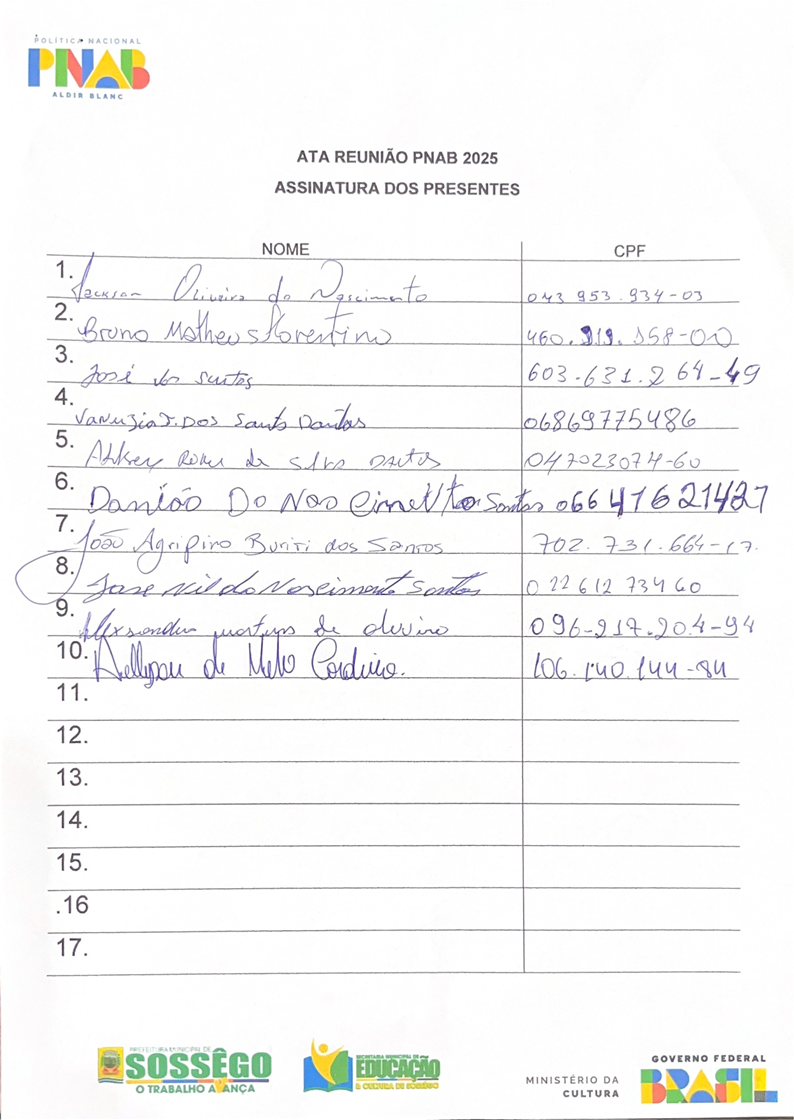 POLÍTICA NACIONAL
PNAB
ALDIR BLANC
ATA REUNIÃO PNAB 2025
ASSINATURA DOS PRESENTES
NOME CPF
1. Jackson Oliveira do Nascimento 043 953.934-03
2. Bruno Matheus Florentino 460.919.158-00
3. José dos Santos 603.631.264-49
4. Vanuzia J. DOS Santos Dantas 06869775486
5. da Silva 047023074-60
6. Damião Do Nascimento Santos 06641621427
7. João Agripino Buriti dos Santos 702.731.664-17.
8. Jose Nildo Nascimento Santos 022 612 734 60
9. de 096-217.204-94
10. de Melo Cordeiro. 106.140.144-84
11.
12.
13.
14.
15.
.16
17.
PREFEITURA MUNICIPAL DE
SOSSÊGO
O TRABALHO AVANÇA
SECRETARIA MUNICIPAL DE
EDUCAÇÃO
& CULTURA DE SOSSÊGO
MINISTÉRIO DA
CULTURA
GOVERNO FEDERAL
BRASIL